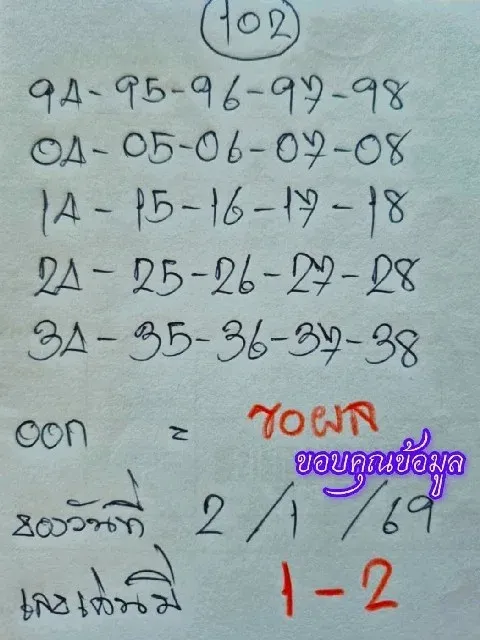 102
94-95-96-97-98
04-05-06-07-08
14-15-16-17-18
24-25-26-27-28
34-35-36-37-38
ออก = ขอผล
ขอบคุณข้อมูล
ของวันที่ 2/1/69
เลขเด่นมี 1-2